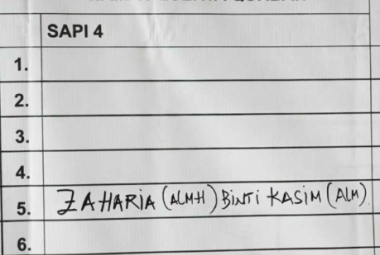 SAPI 4
1.
2.
3.
4.
5. ZAHARIA (ALMH) BINTI KASIM (ALM)
6.